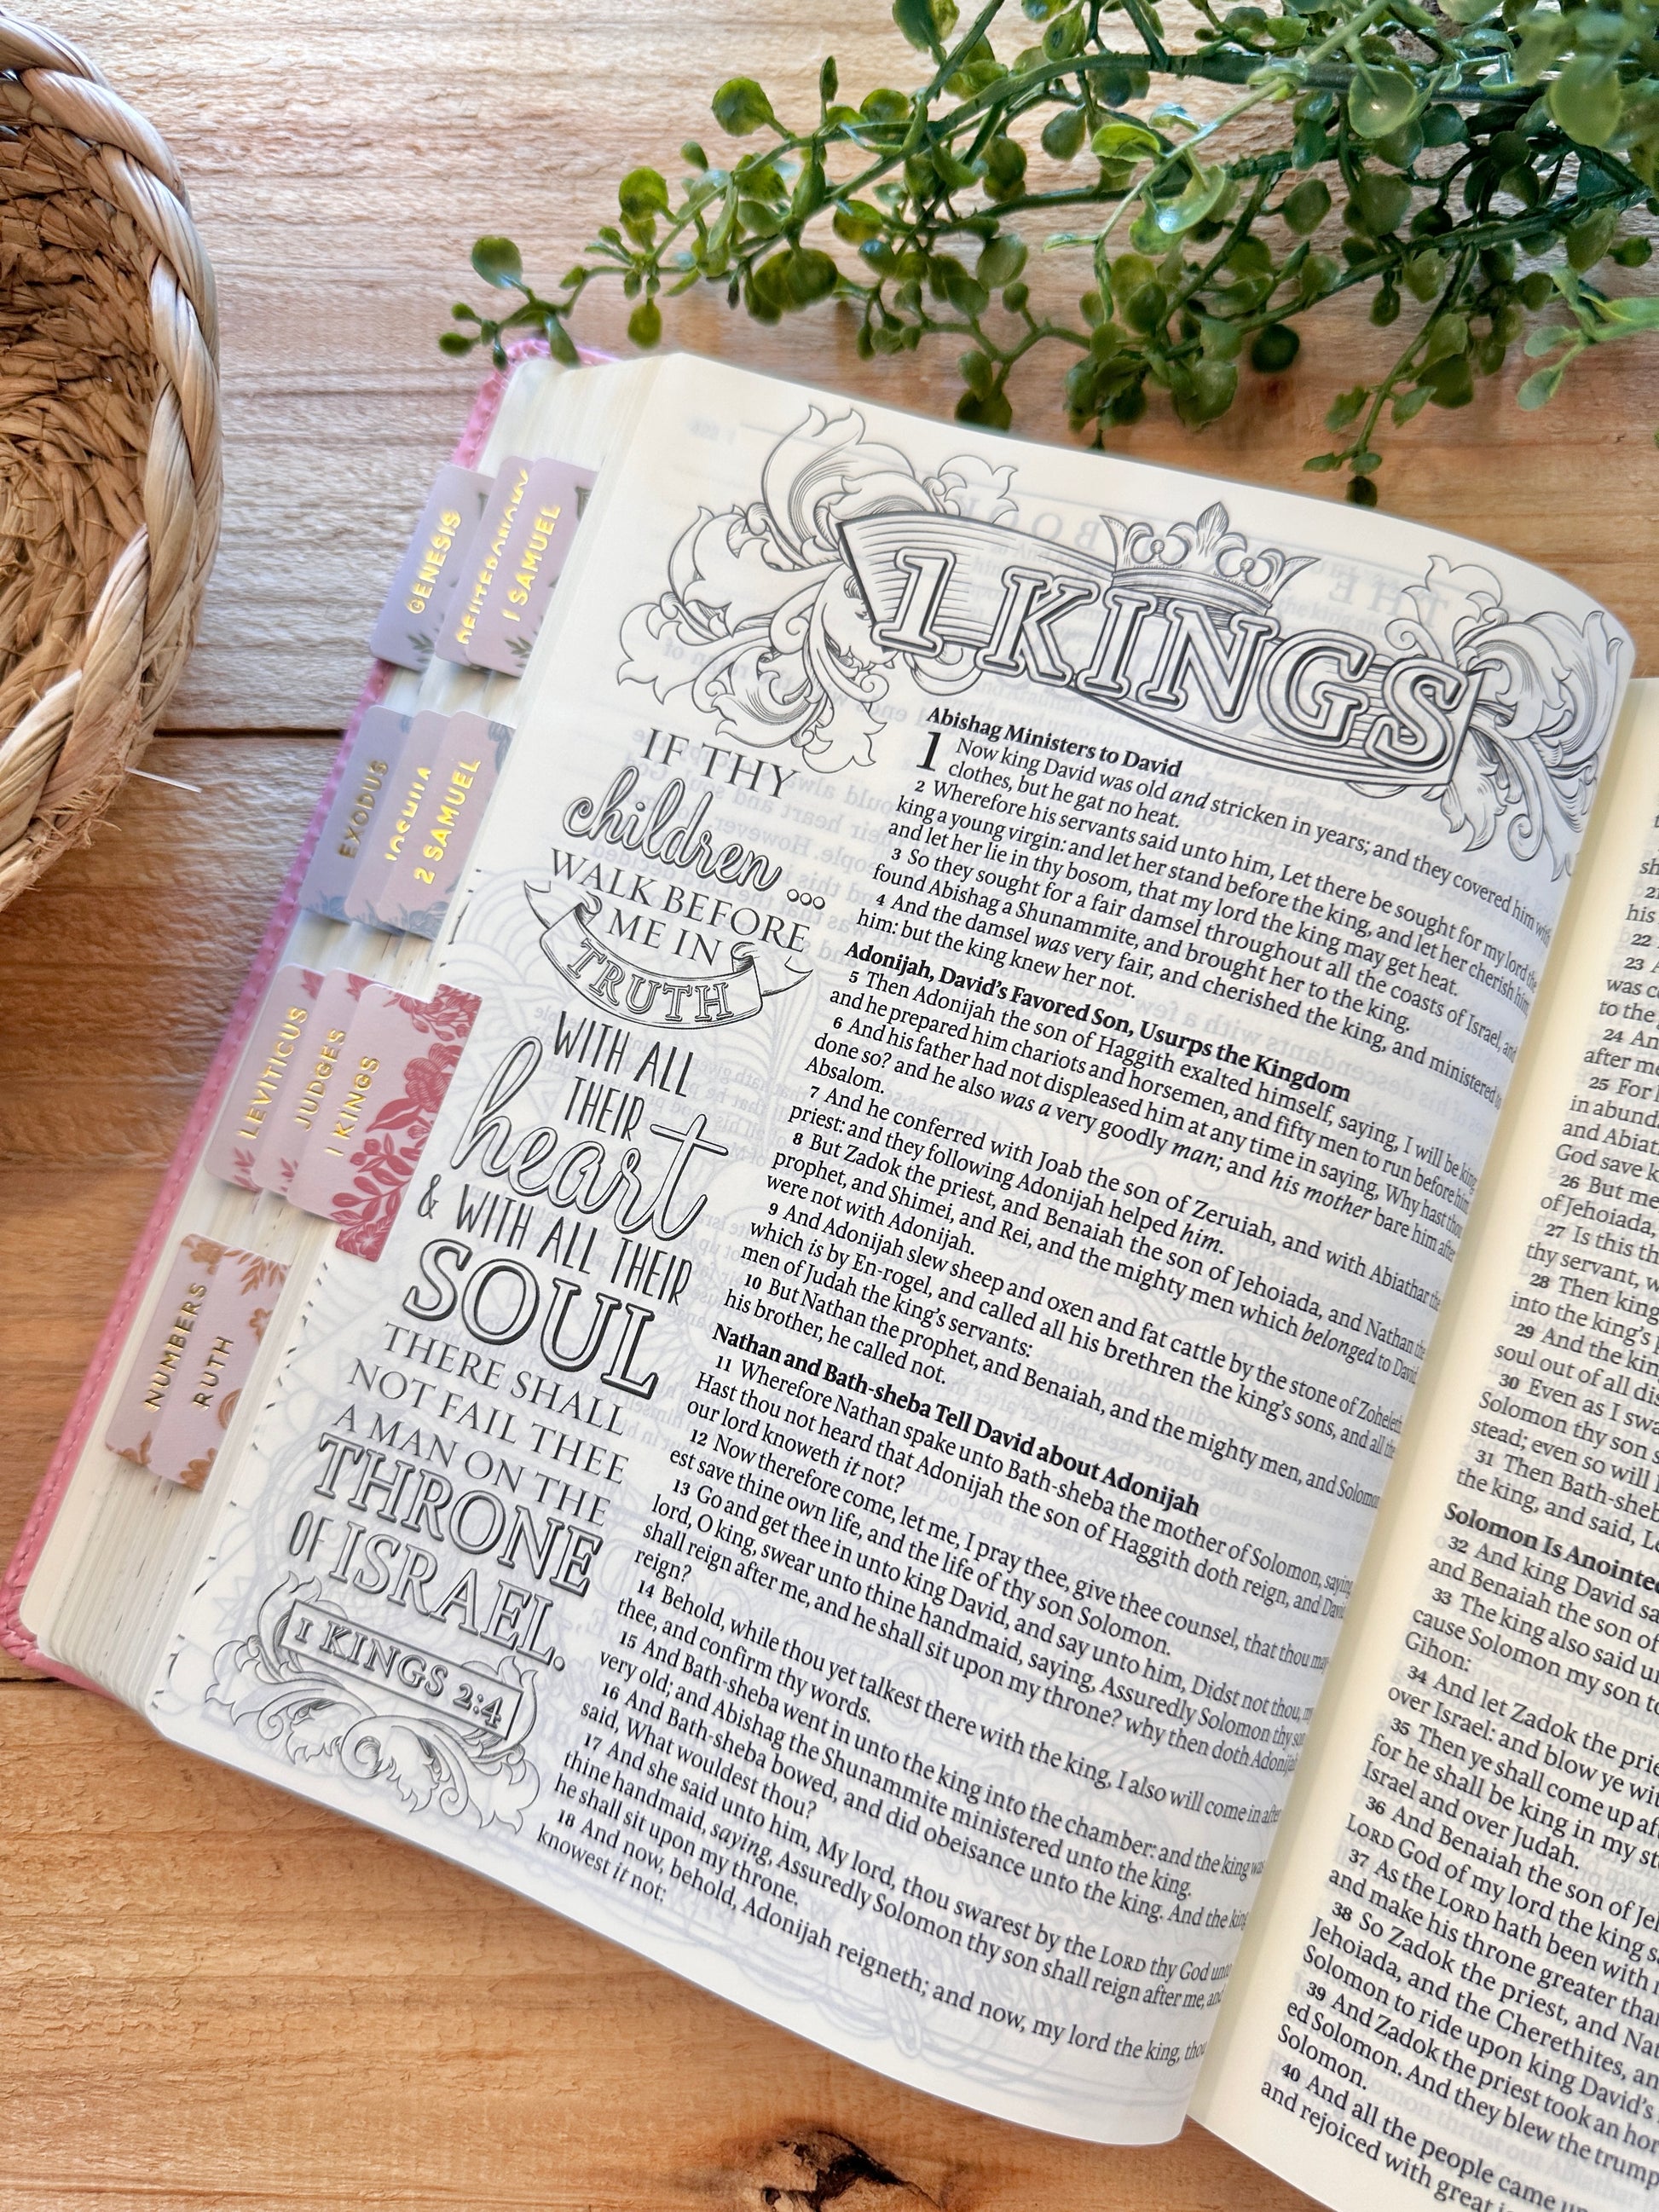 GENESIS
DEUTERONOMY
1 SAMUEL
EXODUS
JOSHUA
2 SAMUEL
LEVITICUS
JUDGES
1 KINGS
NUMBERS
RUTH
1 KINGS
IF THY
children ...
WALK BEFORE
ME IN
TRUTH
WITH ALL
THEIR
heart
& WITH ALL THEIR
SOUL
THERE SHALL
NOT FAIL THEE
A MAN ON THE
THRONE
OF ISRAEL.
1 KINGS 2:4
Abishag Ministers to David
1 Now king David was old and stricken in years; and they covered him with
clothes, but he gat no heat.
2 Wherefore his servants said unto him, Let there be sought for my lord the
king a young virgin: and let her stand before the king, and let her cherish him,
and let her lie in thy bosom, that my lord the king may get heat.
3 So they sought for a fair damsel throughout all the coasts of Israel, and
found Abishag a Shunammite, and brought her to the king.
4 And the damsel was very fair, and cherished the king, and ministered to
him: but the king knew her not.
Adonijah, David's Favored Son, Usurps the Kingdom
5 Then Adonijah the son of Haggith exalted himself, saying, I will be king:
and he prepared him chariots and horsemen, and fifty men to run before him.
6 And his father had not displeased him at any time in saying, Why hast thou
done so? and he also was a very goodly man; and his mother bare him after
Absalom.
7 And he conferred with Joab the son of Zeruiah, and with Abiathar the
priest: and they following Adonijah helped him.
8 But Zadok the priest, and Benaiah the son of Jehoiada, and Nathan the
prophet, and Shimei, and Rei, and the mighty men which belonged to David,
were not with Adonijah.
9 And Adonijah slew sheep and oxen and fat cattle by the stone of Zoheleth,
which is by En-rogel, and called all his brethren the king's sons, and all the
men of Judah the king's servants:
10 But Nathan the prophet, and Benaiah, and the mighty men, and Solomon
his brother, he called not.
Nathan and Bath-sheba Tell David about Adonijah
11 Wherefore Nathan spake unto Bath-sheba the mother of Solomon, saying,
Hast thou not heard that Adonijah the son of Haggith doth reign, and David
our lord knoweth it not?
12 Now therefore come, let me, I pray thee, give thee counsel, that thou may-
est save thine own life, and the life of thy son Solomon.
13 Go and get thee in unto king David, and say unto him, Didst not thou, my
lord, O king, swear unto thine handmaid, saying, Assuredly Solomon thy son
shall reign after me, and he shall sit upon my throne? why then doth Adonijah
reign?
14 Behold, while thou yet talkest there with the king, I also will come in after
thee, and confirm thy words.
15 And Bath-sheba went in unto the king into the chamber: and the king was
very old; and Abishag the Shunammite ministered unto the king.
16 And Bath-sheba bowed, and did obeisance unto the king. And the king
said, What wouldest thou?
17 And she said unto him, My lord, thou swarest by the LORD thy God unto
thine handmaid, saying, Assuredly Solomon thy son shall reign after me, and
he shall sit upon my throne.
18 And now, behold, Adonijah reigneth; and now, my lord the king, thou
knowest it not:
21
his
22
23
was
to the
24 An
after me
25 For
in abund
and Abiat
God save k
26 But me
of Jehoiada,
27 Is this th
thy servant, w
28 Then king
into the king's p
29 And the kin
soul out of all dis
30 Even as I swa
Solomon thy son s
stead; even so will
31 Then Bath-sheb
the king, and said, Le
Solomon Is Anointed
32 And king David sa
and Benaiah the son of
33 The king also said u
cause Solomon my son to
Gihon:
34 And let Zadok the prie
over Israel: and blow ye wit
35 Then ye shall come up aft
for he shall be king in my st
Israel and over Judah.
36 And Benaiah the son of Jeh
LORD God of my lord the king s
37 As the LORD hath been with
and make his throne greater tha
38 So Zadok the priest, and Nat
Jehoiada, and the Cherethites, an
Solomon to ride upon king David's
39 And Zadok the priest took an hor
ed Solomon. And they blew the trump
Solomon.
40 And all the people came u
and rejoiced with great